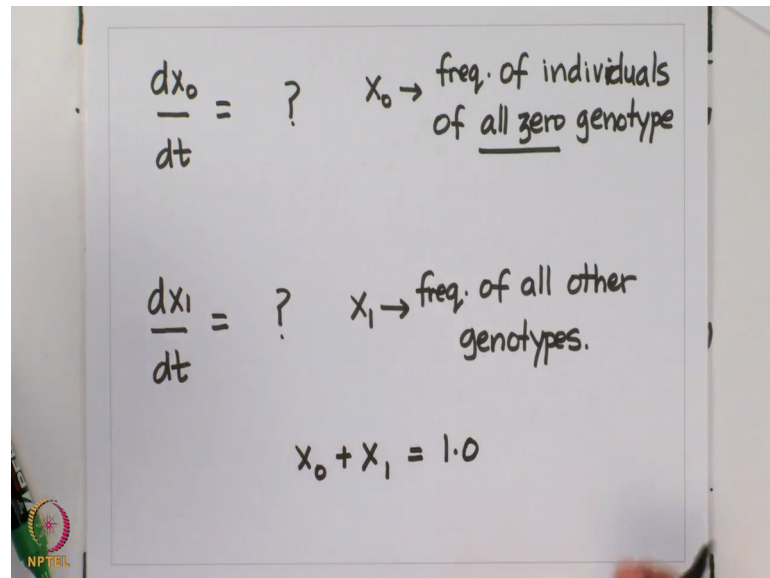 dx₀/dt = ? x₀ → freq. of individuals
of all zero genotype
dx₁/dt = ? x₁ → freq. of all other
genotypes.
x₀ + x₁ = 1.0
NPTEL